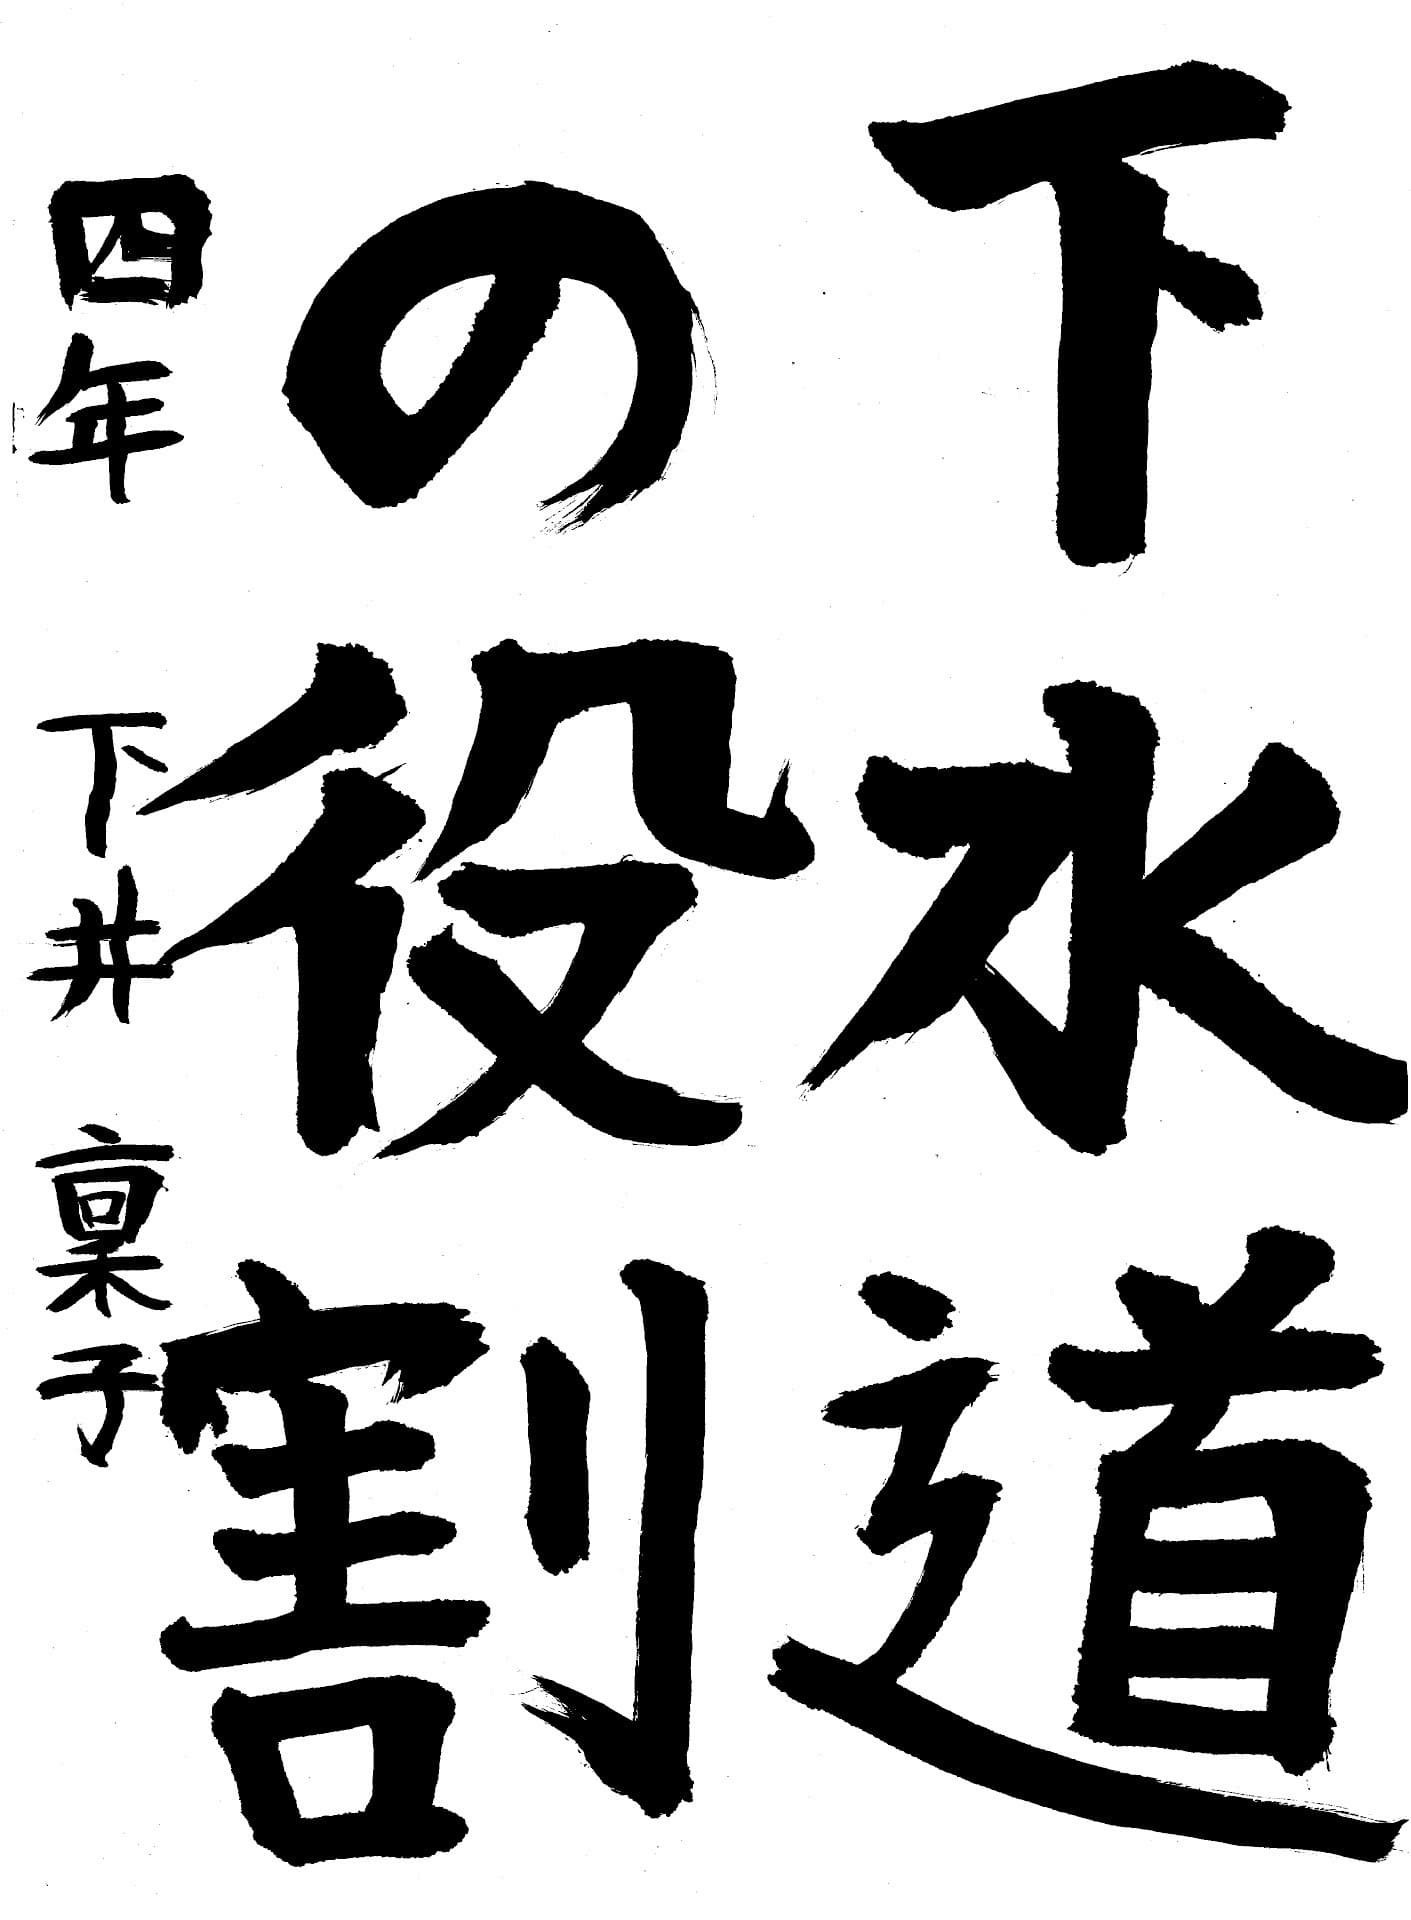 下水道
の役割
四年 下井 稟子